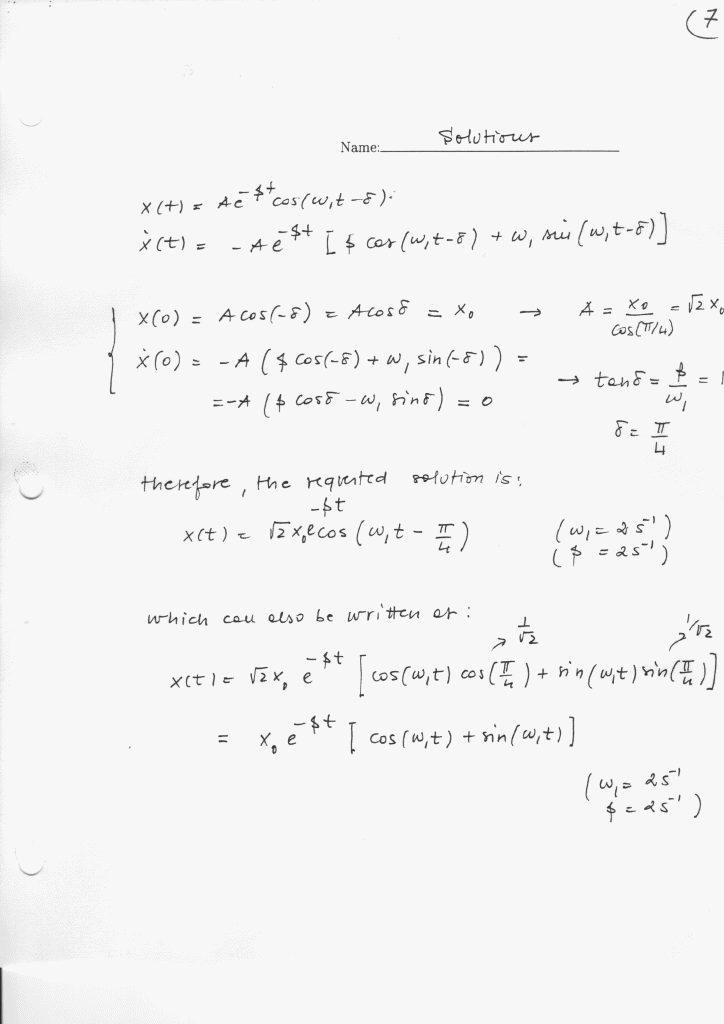 (7
Name: Solutions
x(t) = Ae^{-βt} cos(ω₁t - δ).
ẋ(t) = -Ae^{-βt} [β cos(ω₁t-δ) + ω₁ sin(ω₁t-δ)]
x(0) = A cos(-δ) = A cosδ = x₀ → A = x₀/cos(π/4) = √2 x₀
ẋ(0) = -A (β cos(-δ) + ω₁ sin(-δ)) =
= -A (β cosδ - ω₁ sinδ) = 0 → tanδ = β/ω₁ = 1
δ = π/4
therefore, the requested solution is:
x(t) = √2 x₀ e^{-βt} cos(ω₁t - π/4) (ω₁ = 2 s⁻¹)
(β = 2 s⁻¹)
which can also be written as:
1/√2 1/√2
x(t) = √2 x₀ e^{-βt} [cos(ω₁t) cos(π/4) + sin(ω₁t) sin(π/4)]
= x₀ e^{-βt} [cos(ω₁t) + sin(ω₁t)]
(ω₁ = 2 s⁻¹
β = 2 s⁻¹)